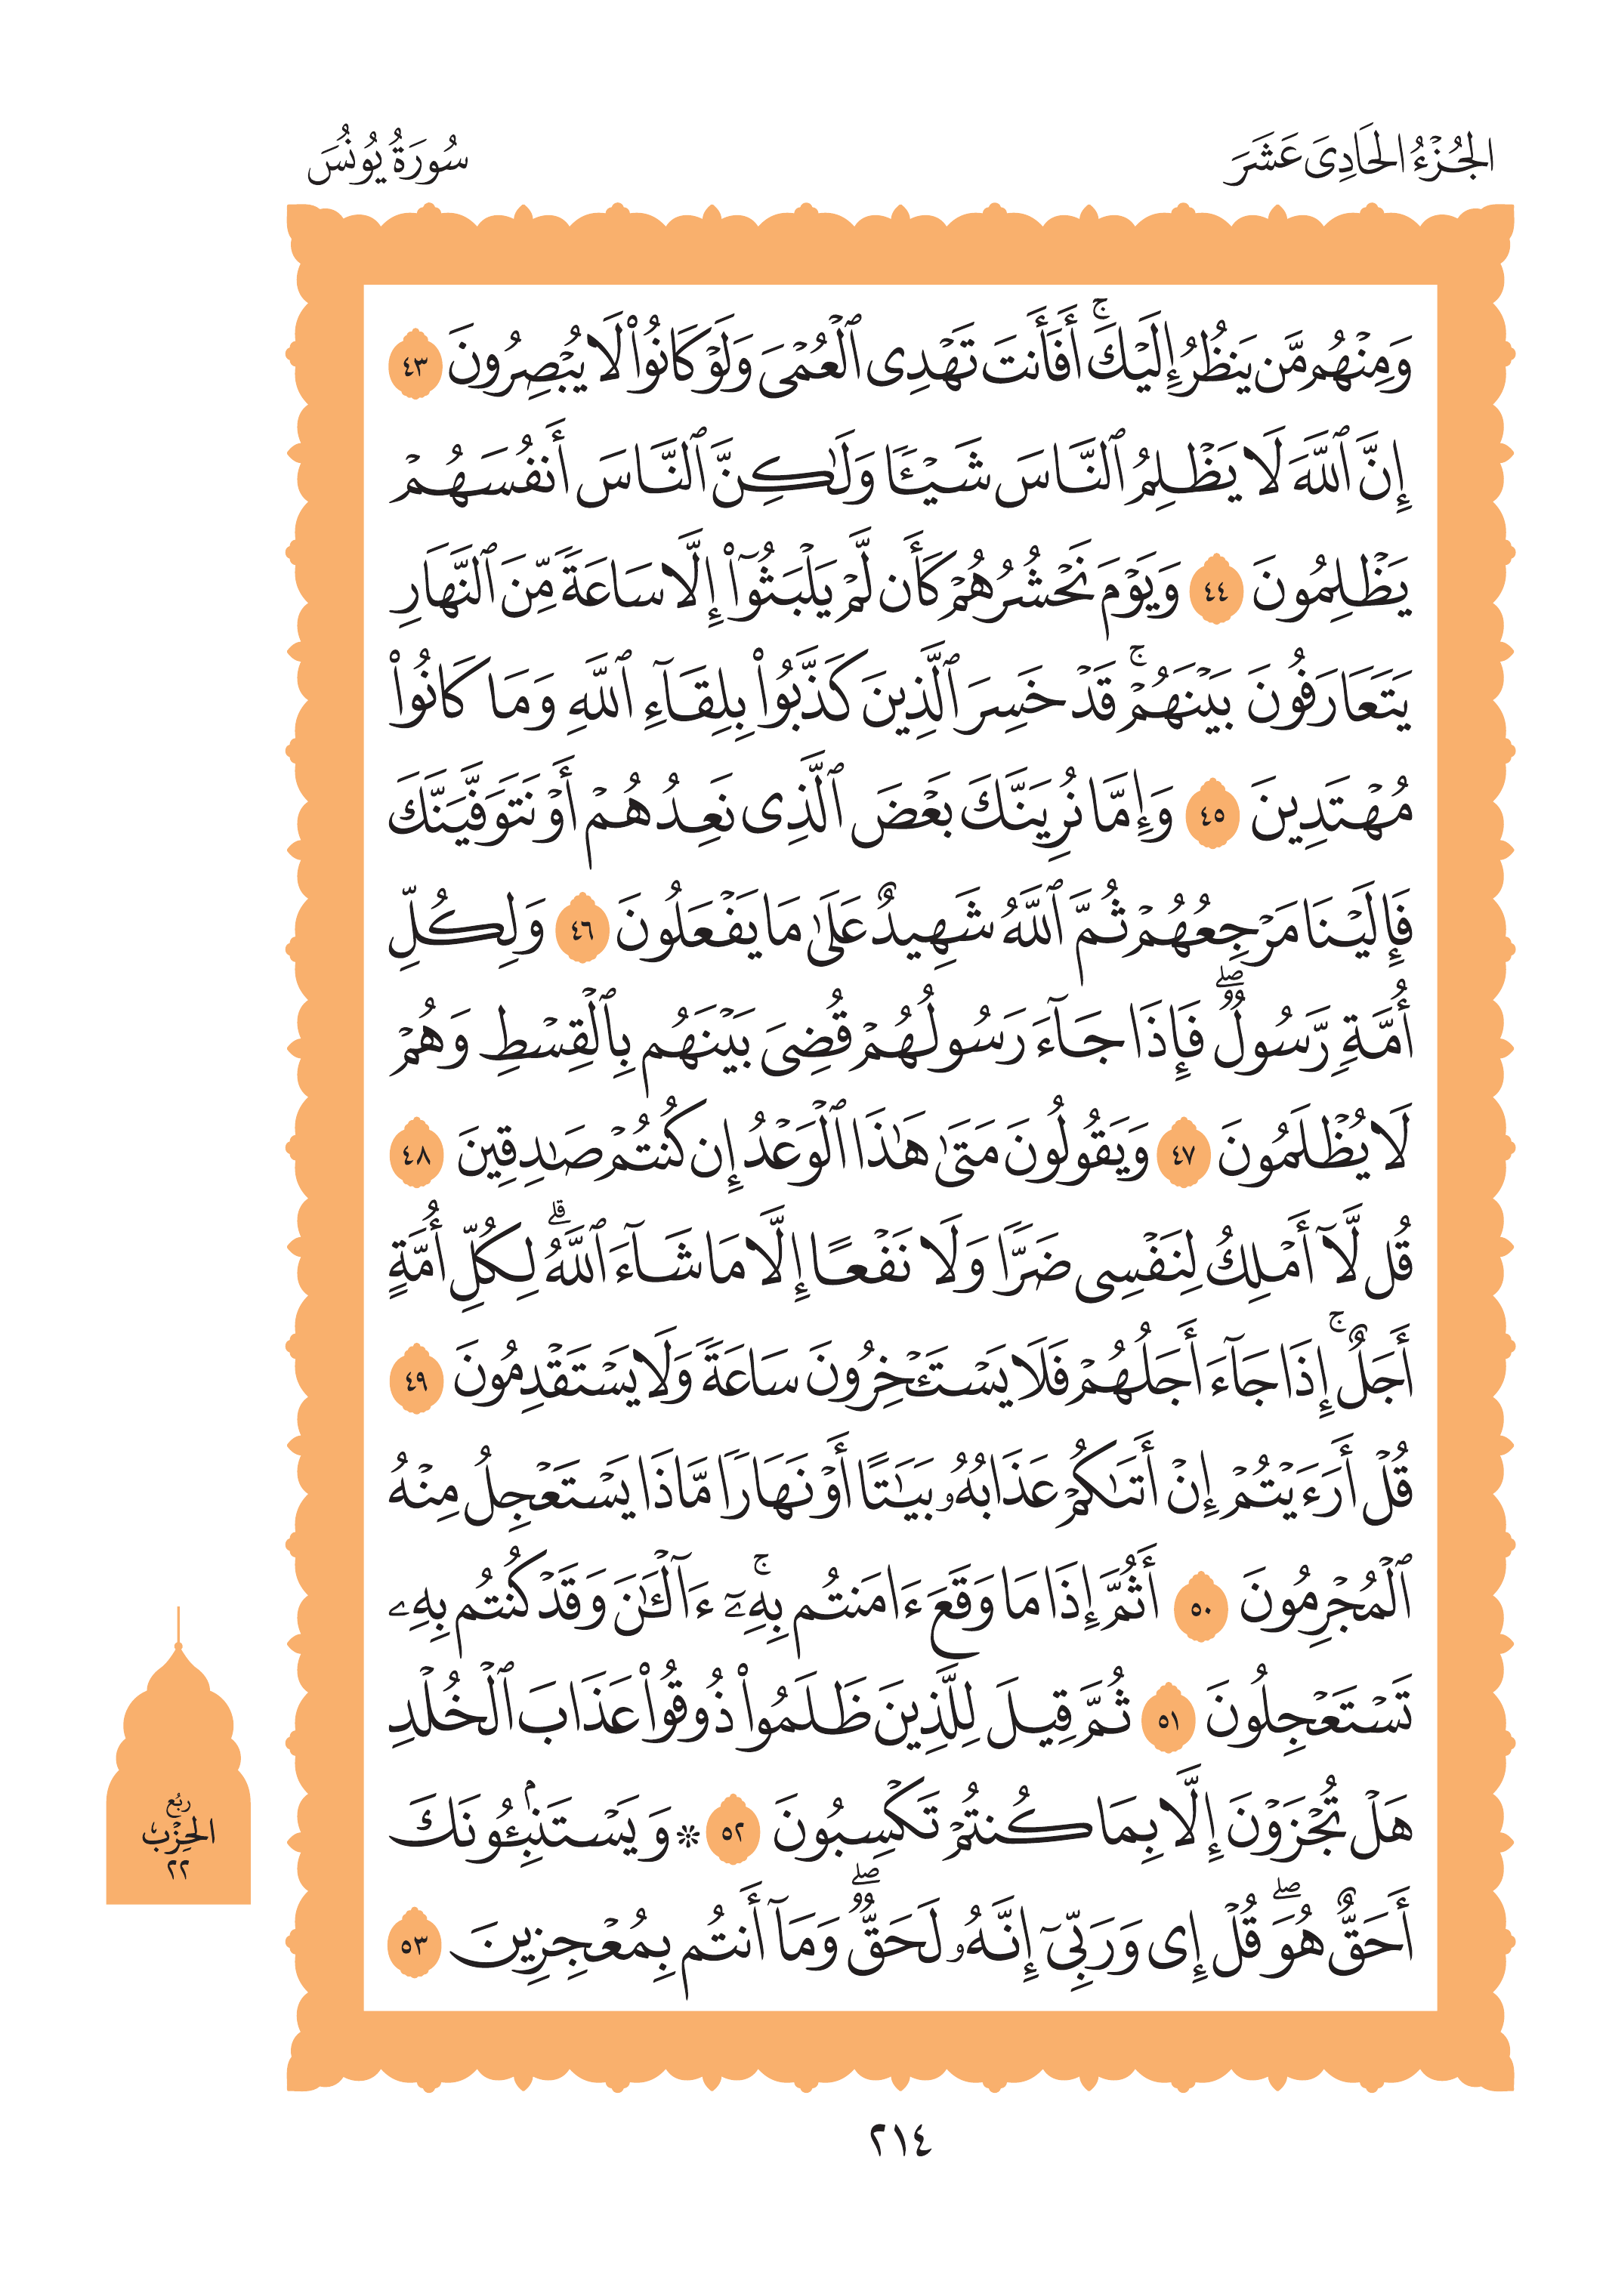 الجُزْءُ الحَادِىَ عَشَرَ
سُورَةُ يُونُسَ
وَمِنْهُم مَّن يَنظُرُ إِلَيْكَ ۚ أَفَأَنتَ تَهْدِى ٱلْعُمْىَ وَلَوْ كَانُوا۟ لَا يُبْصِرُونَ ٤٣
إِنَّ ٱللَّهَ لَا يَظْلِمُ ٱلنَّاسَ شَيْـًٔا وَلَـٰكِنَّ ٱلنَّاسَ أَنفُسَهُمْ
يَظْلِمُونَ ٤٤ وَيَوْمَ نَحْشُرُهُمْ كَأَن لَّمْ يَلْبَثُوٓا۟ إِلَّا سَاعَةً مِّنَ ٱلنَّهَارِ
يَتَعَارَفُونَ بَيْنَهُمْ ۚ قَدْ خَسِرَ ٱلَّذِينَ كَذَّبُوا۟ بِلِقَآءِ ٱللَّهِ وَمَا كَانُوا۟
مُهْتَدِينَ ٤٥ وَإِمَّا نُرِيَنَّكَ بَعْضَ ٱلَّذِى نَعِدُهُمْ أَوْ نَتَوَفَّيَنَّكَ
فَإِلَيْنَا مَرْجِعُهُمْ ثُمَّ ٱللَّهُ شَهِيدٌ عَلَىٰ مَا يَفْعَلُونَ ٤٦ وَلِكُلِّ
أُمَّةٍ رَّسُولٌ ۖ فَإِذَا جَآءَ رَسُولُهُمْ قُضِىَ بَيْنَهُم بِٱلْقِسْطِ وَهُمْ
لَا يُظْلَمُونَ ٤٧ وَيَقُولُونَ مَتَىٰ هَـٰذَا ٱلْوَعْدُ إِن كُنتُمْ صَـٰدِقِينَ ٤٨
قُل لَّآ أَمْلِكُ لِنَفْسِى ضَرًّا وَلَا نَفْعًا إِلَّا مَا شَآءَ ٱللَّهُ ۗ لِكُلِّ أُمَّةٍ
أَجَلٌ ۚ إِذَا جَآءَ أَجَلُهُمْ فَلَا يَسْتَـْٔخِرُونَ سَاعَةً وَلَا يَسْتَقْدِمُونَ ٤٩
قُلْ أَرَءَيْتُمْ إِنْ أَتَىٰكُمْ عَذَابُهُۥ بَيَـٰتًا أَوْ نَهَارًا مَّاذَا يَسْتَعْجِلُ مِنْهُ
ٱلْمُجْرِمُونَ ٥٠ أَثُمَّ إِذَا مَا وَقَعَ ءَامَنتُم بِهِۦٓ ۚ ءَآلْـَٔـٰنَ وَقَدْ كُنتُم بِهِۦ
تَسْتَعْجِلُونَ ٥١ ثُمَّ قِيلَ لِلَّذِينَ ظَلَمُوا۟ ذُوقُوا۟ عَذَابَ ٱلْخُلْدِ
هَلْ تُجْزَوْنَ إِلَّا بِمَا كُنتُمْ تَكْسِبُونَ ٥٢ ۞ وَيَسْتَنۢبِـُٔونَكَ
أَحَقٌّ هُوَ ۖ قُلْ إِى وَرَبِّىٓ إِنَّهُۥ لَحَقٌّ ۖ وَمَآ أَنتُم بِمُعْجِزِينَ ٥٣
رُبْع
الحِزْب
٢٢
٢١٤